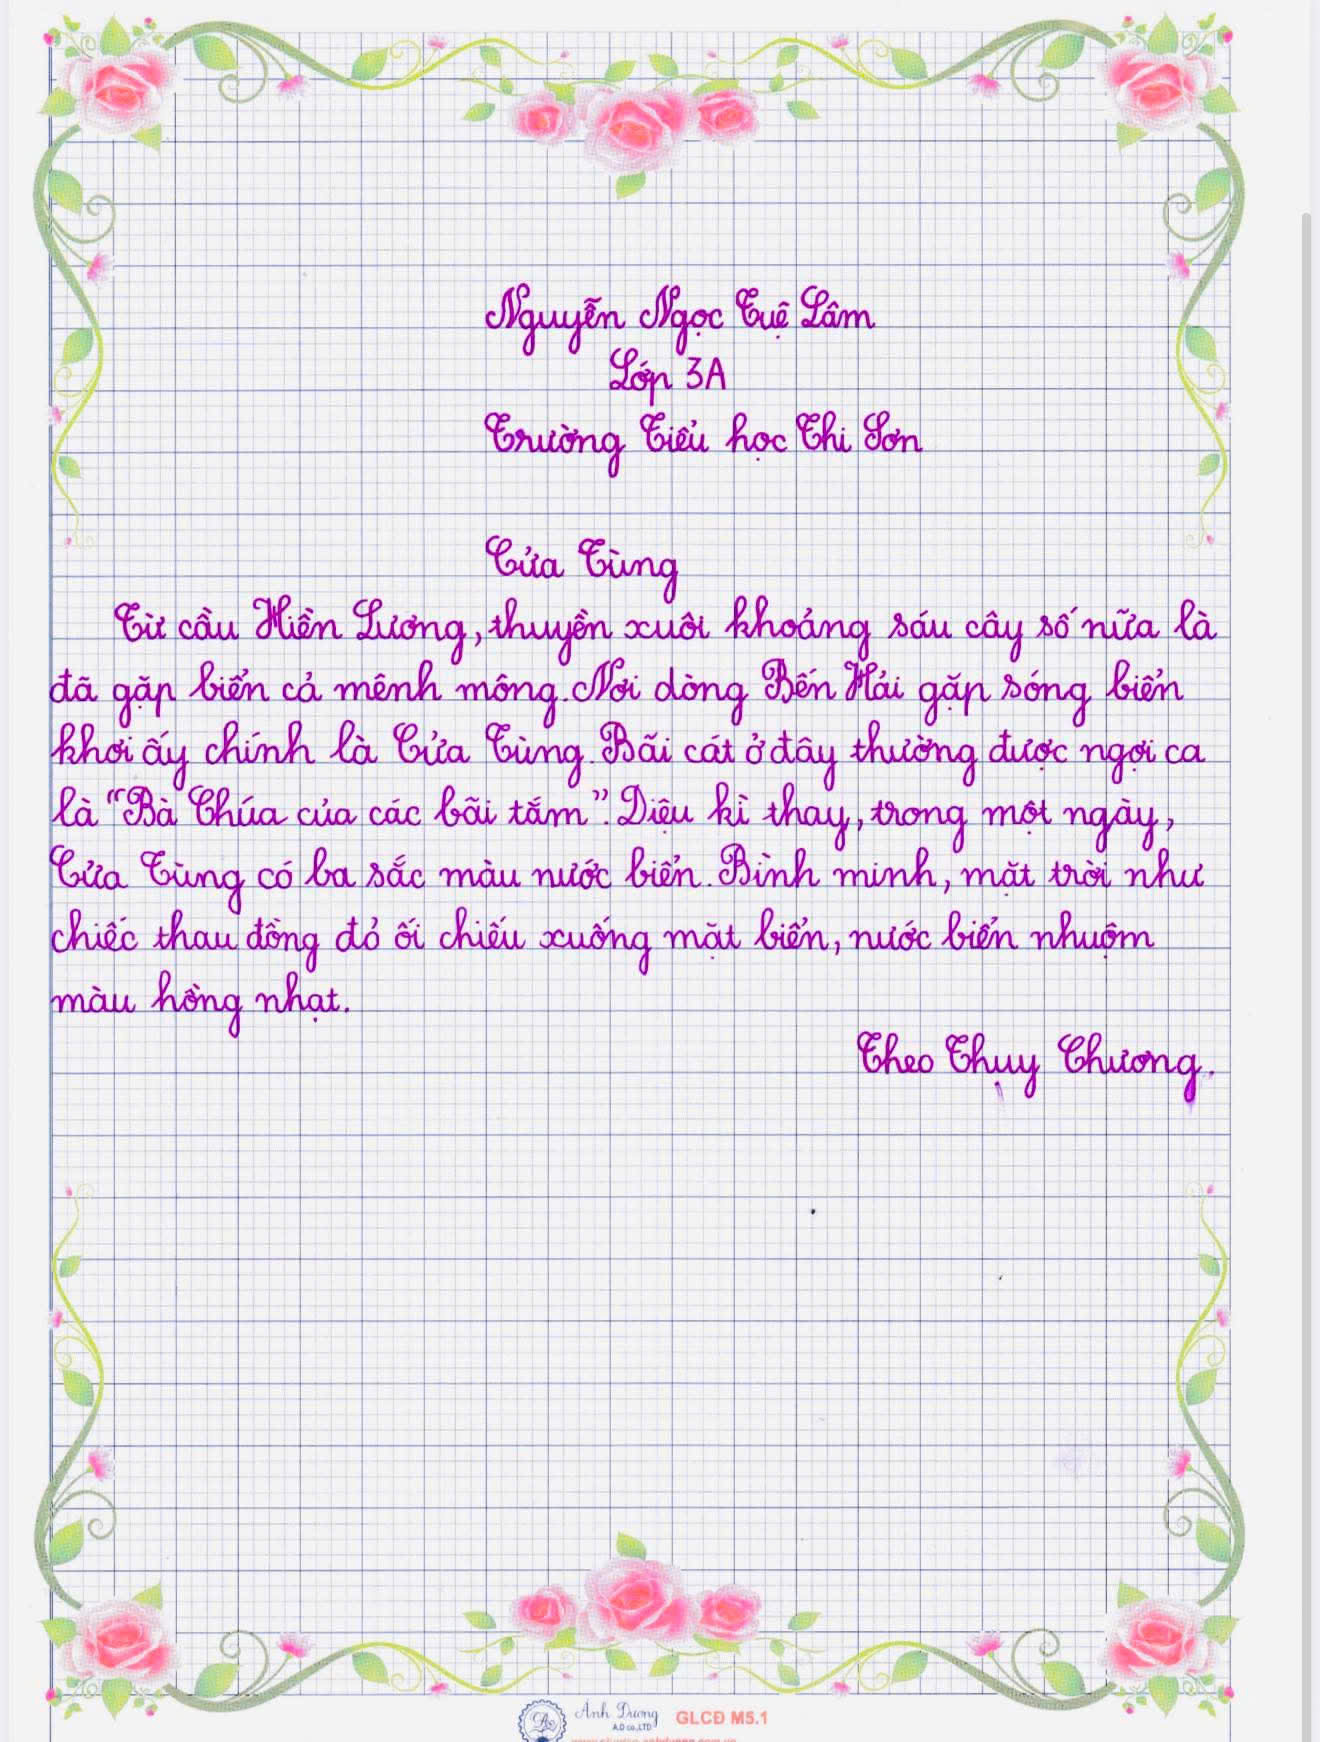 Nguyễn Ngọc Tuệ Lâm
Lớp 3A
Trường Tiểu học Thi Sơn
Cửa Tùng
Từ cầu Hiền Lương, thuyền xuôi khoảng sáu cây số nữa là
đã gặp biển cả mênh mông. Nơi dòng Bến Hải gặp sóng biển
khơi ấy chính là Cửa Tùng. Bãi cát ở đây thường được ngợi ca
là “Bà Chúa của các bãi tắm”. Diệu kì thay, trong một ngày,
Cửa Tùng có ba sắc màu nước biển. Bình minh, mặt trời như
chiếc thau đồng đỏ ối chiếu xuống mặt biển, nước biển nhuộm
màu hồng nhạt.
Theo Thụy Chương.
Ánh Dương
A.D co.,LTD
GLCĐ M5.1